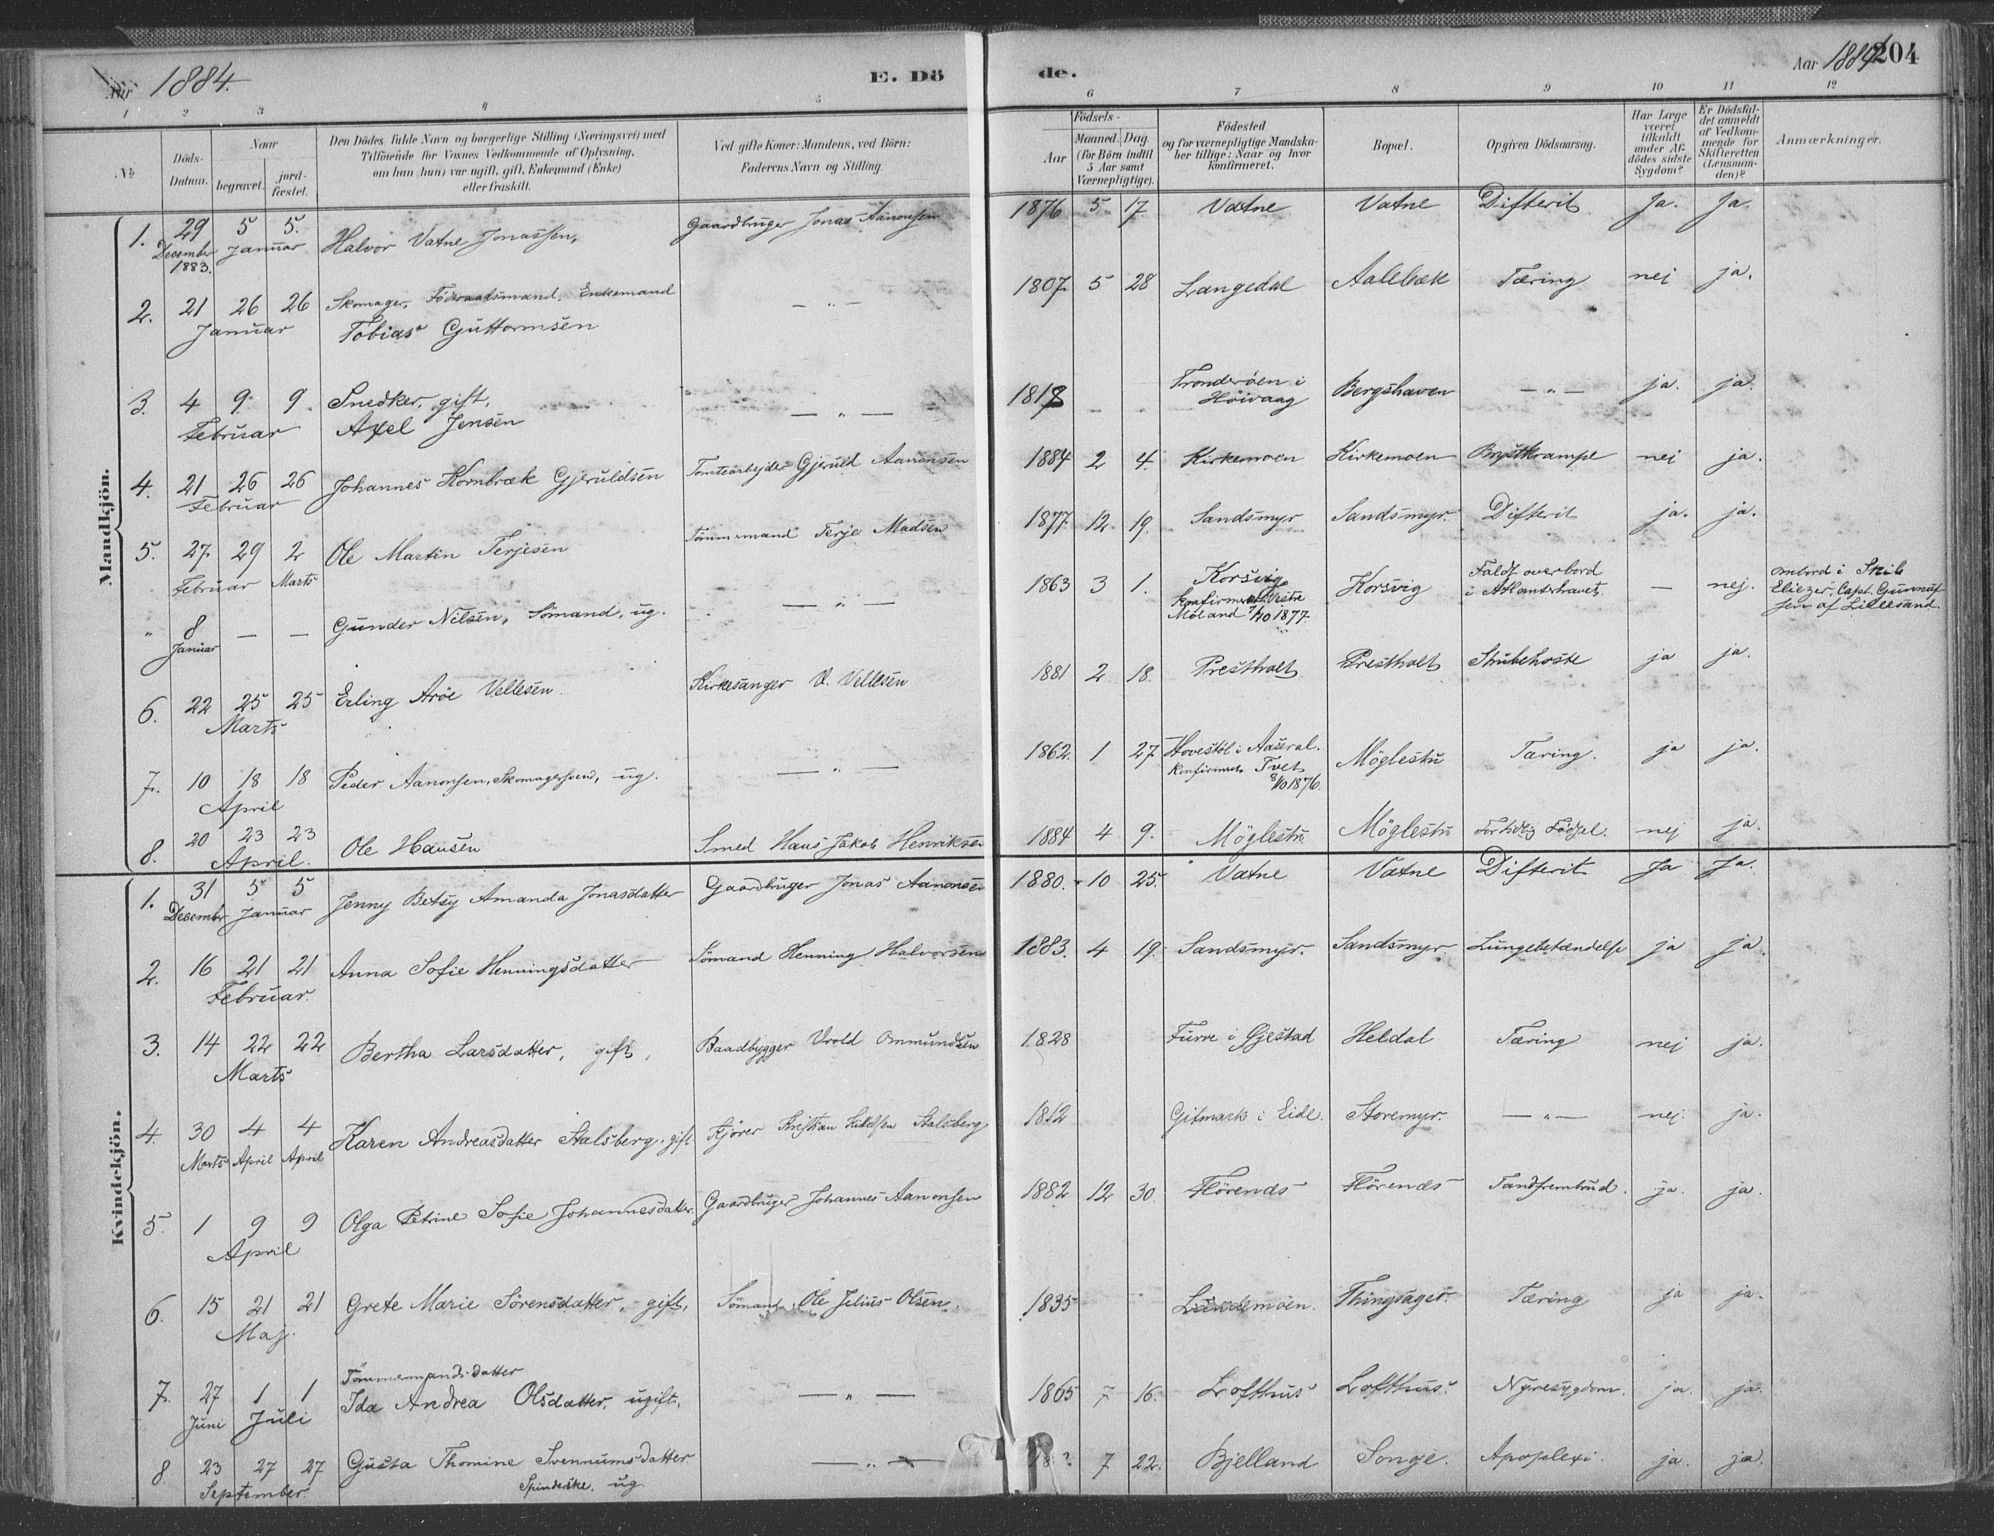 Aar 1884.
E. Dö
de.
Aar 1884
204
1 2 3 4 5 6 7 8 9 10 11 12
No
Döds-Datum.
Naar
begravet.
jord-fæstet.
Den Dödes fulde Navn og borgerlige Stilling (Næringsvei) med
Tilföiende for Voxnes Vedkommende af Oplysning,
om han (hun) var ugift, gift, Enkemand (Enke)
eller fraskilt.
Ved gifte Koner: Mandens, ved Börn:
Faderens Navn og Stilling.
Födsels-
Aar
Maaned. Dag
(for Börn indtil
5 Aar samt
Værnepligtige).
Födested
og for værnepligtige Mandska-
ber tillige: Naar og hvor
konfirmeret.
Bopæl.
Opgiven Dödsaarsag.
Har Læge
været
tilkaldt
under Af-
dödes sidste
Sygdom?
Er Dödsfal-
det anmeldt
af Vedkom-
mende for
Skifteretten
(Lensman-
den)?
Anmærkninger.
Mandkjön.
1. 29 December 1883. 5 5. Januar Halvor Vatne Jonassen, Gaardbruger Jonas Aanonsen 1876 5 17. Vatne Vatne Difterit Ja. Ja.
2. 21 26 26 Januar Skomager, Föderaadsmand, Enkemand
Tobias Guttormsen — " — 1807. 5 28 Langedal Aalebæk Tæring nej ja.
3. 4 9 9. Februar Snedker, gift,
Axel Jensen — " — 1818 Tronderöen i
Höivaag Bergshaven — " — ja. ja.
4. 21 26 26 Februar Johannes Kornbræk Gjeruldsen Tomtearbejder Gjeruld Aanonsen 1884 2 4. Kirkemoen Kirkemoen Brystkrampe nej ja.
5. 27. 29 2 Februar Marts Ole Martin Terjesen Tömmermand Terje Madsen 1877. 12. 19. Sandsmyr Sandsmyr. Difterit ja. ja.
" 8 Januar — — Gunder Nilsen, Sömand, ug. — " — 1863 3 1. Korsvig
konfirmeret Vestre
Moland 7/10 1877. Korsvig Faldt overbord
i Atlanterhavet. — nej. ombord i Skib
Eliezer, Capt. Gunnuf-
sen af Lillesand.
6. 22 25 25 Marts Erling Aröe Vellesen. Kirkesanger V. Vellesen 1881 2 18. Prestholt Prestholt Strubehoste ja ja.
7. 10 18 18 April Peder Aanonsen, Skomagersvend, ug. — " — 1862. 1 27. Hovestöl i Aaseral.
Konfirmeret Tvet
8/10 1876. Möglestu Tæring. ja ja.
8. 20 23 23 April. Ole Hansen Smed Hans Jakob Henriksen 1884 4 9. Möglestu Möglestu For tidlig Födsel. nej ja.
Kvindekjön.
1. 31 December 5 5 Januar Jenny Betsy Amanda Jonasdatter Gaardbruger Jonas Aanonsen 1880. 10 25. Vatne Vatne Difterit Ja Ja.
2. 16 21 21 Februar. Anna Sofie Henningsdatter Sömand Henning Halvorsen 1883. 4 19. Sandsmyr. Sandsmyr. Lungebetændelse ja ja.
3. 14 22 22 Marts Bertha Larsdatter, gift, Baadbygger Vrold Ommundsen 1828 Furre i Gjestad Heldal Tæring nej ja.
4. 30 Marts 4 April 4 April Karen Andreasdatter Stalsberg, gift Kjörer Kristian Stalsberg 1812 Gitmark i Eide. Storemyr. — " — nej. ja.
5. 1 9 9 April Olga Petrine Sofie Johannesdatter. Gaardbruger Johannes Aanonsen 1882 12 30. Flörenæs Flörenæs Tandfrembrud. ja. ja.
6. 15 21 21 Maj. Grete Marie Sörensdatter, gift, Sömand Ole Julius Olsen. 1835 Lindemoen. Thingsager. Tæring ja ja.
7. 27 Juni 1 1 Juli Tömmermands datter
Ida Andrea Olsdatter, ugift, — " — 1865 7 16. Lofthus Lofthus. Nyresygdom. ja. ja.
8. 23 27 27 September. Gusta Thomine Svennumsdatter
Spinderske, ug — " — 7 22. Bjelland Songe. Apoplexi. ja. ja.